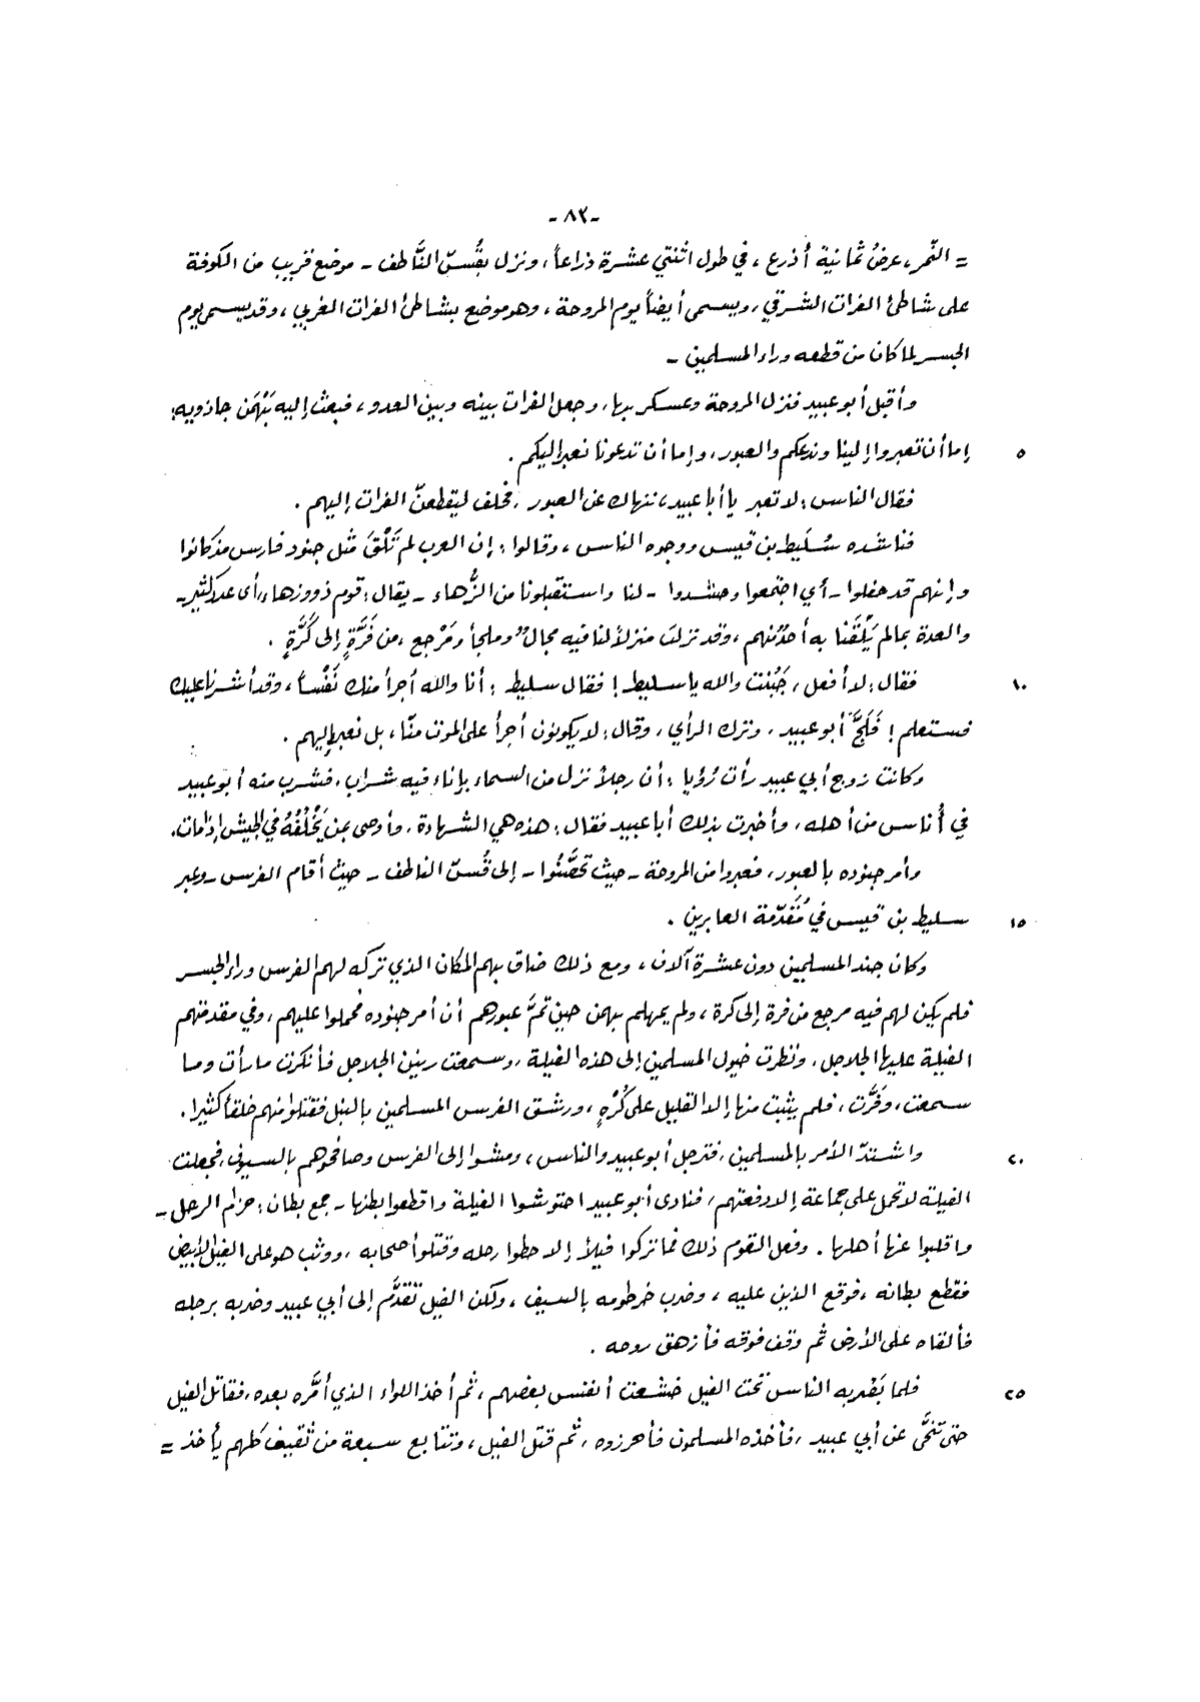 -٨٣-
= النّمر، عرضُ ثمانية أذرع، في طول اثنتي عشرة ذراعاً، ونزل بقُسّ النَّاطف - موضع قريب من الكوفة
على شاطئ الفرات الشرقي، ويسمى أيضاً يوم المروحة، وهو موضع بشاطئ الفرات الغربي، وقد يسمى يوم
الجسر لما كان من قطعه وراء المسلمين -
وأقبل أبو عبيد فنزل المروحة وعسكر بها، وجعل الفرات بينه وبين العدو، فبعث إليه بَهْمَن جاذويه:
٥ إما أن تعبروا إلينا وندعكم والعبور، وإما أن تدعونا نعبر إليكم.
فقال الناس: لا تعبر يا أبا عبيد، ننهاك عن العبور، فحلف ليقطعنّ الفرات إليهم.
فناشده سُلَيط بن قيس ووجوه الناس، وقالوا: إن العرب لم تَلْقَ مثل جنود فارس مذ كانوا
وإنهم قد حفلوا - أي اجتمعوا وحشدوا - لنا واستقبلونا من الزُّهاء - يقال: قوم ذوو زهاء، أي عدد كثير -
والعدة بما لم يَلْقَنا به أحدٌ منهم، وقد نزلتَ منزلاً لنا فيه مجالٌ وملجأ ومَرْجع، من فَرَّةٍ إلى كَرَّةٍ.
١٠ فقال: لا أفعل، جَبُنْت والله يا سليط! فقال سليط: أنا والله أجرأ منك نَفْساً، وقد أشرنا عليك
فستعلم! فَلَجَّ أبو عبيد، وترك الرأي، وقال: لا يكونون أجرأ على الموت منّا، بل نعبر إليهم.
وكانت زوج أبي عبيد رأت رُؤيا: أن رجلاً نزل من السماء بإناء فيه شراب، فشرب منه أبو عبيد
في أُناس من أهله، وأخبرت بذلك أبا عبيد فقال: هذه هي الشهادة، وأوصى بمن يَخْلُفُهُ في الجيش إذا مات.
وأمر جنوده بالعبور، فعبروا من المروحة - حيث تحصَّنُوا - إلى قُسّ الناطف - حيث أقام الفرس - وعبر
١٥ سليط بن قيس في مُقَدّمة العابرين.
وكان جند المسلمين دون عشرة آلاف، ومع ذلك ضاق بهم المكان الذي تركه لهم الفرس وراء الجسر
فلم يكن لهم فيه مرجع من فرة إلى كرة، ولم يمهلهم بهمن حين تمَّ عبورهم أن أمر جنوده فحملوا عليهم، وفي مقدمتهم
الفيلة عليها الجلاجل. ونظرت خيول المسلمين إلى هذه الفيلة، وسمعت رنين الجلاجل فأنكرت ما رأت وما
سمعت، وفَرَّت، فلم يثبت منها إلا القليل على كُرْهٍ، ورشق الفرس المسلمين بالنبل فقتلوا منهم خلقاً كثيرا.
٢٠ واشتدّ الأمر بالمسلمين، فترجل أبو عبيد والناس، ومشوا إلى الفرس وصافحوهم بالسيوف، فجعلت
الفيلة لا تحمل على جماعة إلا دفعتهم، فنادى أبو عبيد احتوشوا الفيلة واقطعوا بطنها - جمع بطان: حزام الرحل -
واقلبوا عنها أهلها. وفعل القوم ذلك فما تركوا فيلاً إلا حطوا رحله وقتلوا أصحابه، ووثب هو على الفيل الأبيض
فقطع بطانه، فوقع الذين عليه، وضرب خرطومه بالسيف، ولكن الفيل تقدَّم إلى أبي عبيد وضربه برجله
فألقاه على الأرض ثم وقف فوقه فأزهق روحه.
٢٥ فلما بَصُر به الناس تحت الفيل خشعت أنفس بعضهم، ثم أخذ اللواء الذي أمَّره بعده، فقاتل الفيل
حتى تنحَّى عن أبي عبيد، فأخذه المسلمون فأحرزوه، ثم قتل الفيل، وتتابع سبعة من ثقيف كلهم يأخذ =